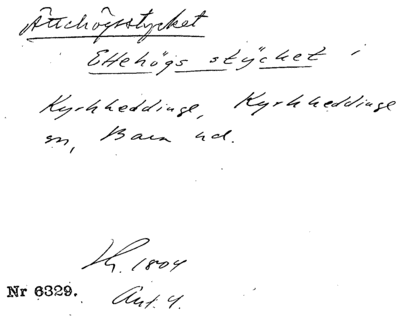 Ättehögsstycket
Ettehögs stycket i
Kyrkheddinge, Kyrkheddinge
sn, Bara hd.
1804
Nr 6329. Ant. 4.